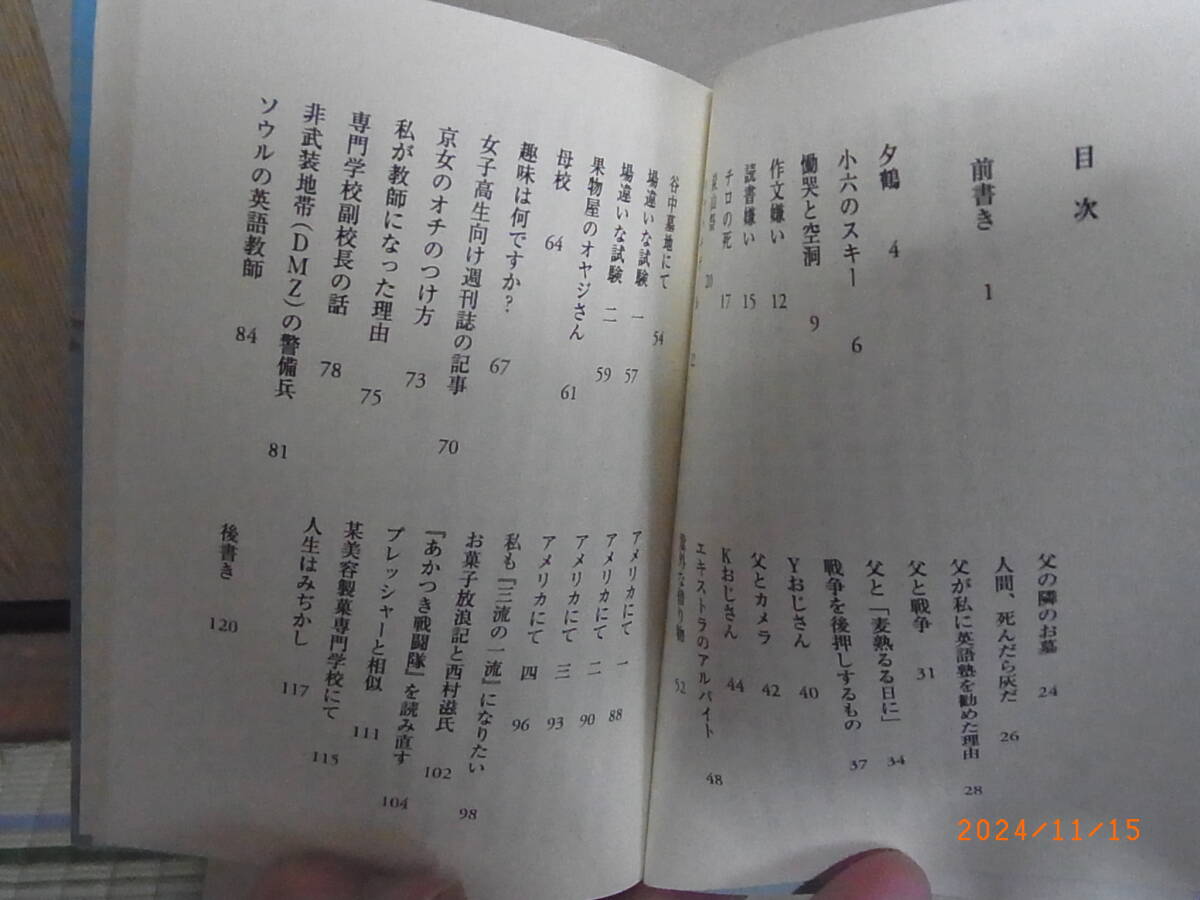 目次
前書き 1
夕鶴 4
小六のスキー 6
慟哭と空洞 9
作文嫌い 12
読書嫌い 15
チロの死 17
20
父の隣のお墓 24
人間、死んだら灰だ 26
父が私に英語塾を勧めた理由 28
父と戦争 31
父と「麦熟るる日に」 34
戦争を後押しするもの 37
Yおじさん 40
父とカメラ 42
Kおじさん 44
エキストラのアルバイト 48
52
谷中墓地にて 54
場違いな試験 一 57
場違いな試験 二 59
果物屋のオヤジさん 61
母校 64
趣味は何ですか? 67
女子高生向け週刊誌の記事 70
京女のオチのつけ方 73
私が教師になった理由 75
専門学校副校長の話 78
非武装地帯(DMZ)の警備兵 81
ソウルの英語教師 84
アメリカにて 一 88
アメリカにて 二 90
アメリカにて 三 93
アメリカにて 四 96
私も『三流の一流』になりたい 98
お菓子放浪記と西村滋氏 102
『あかつき戦闘隊』を読み直す 104
プレッシャーと相似 111
某美容製菓専門学校にて 115
人生はみちかし 117
後書き 120
2024/11/15